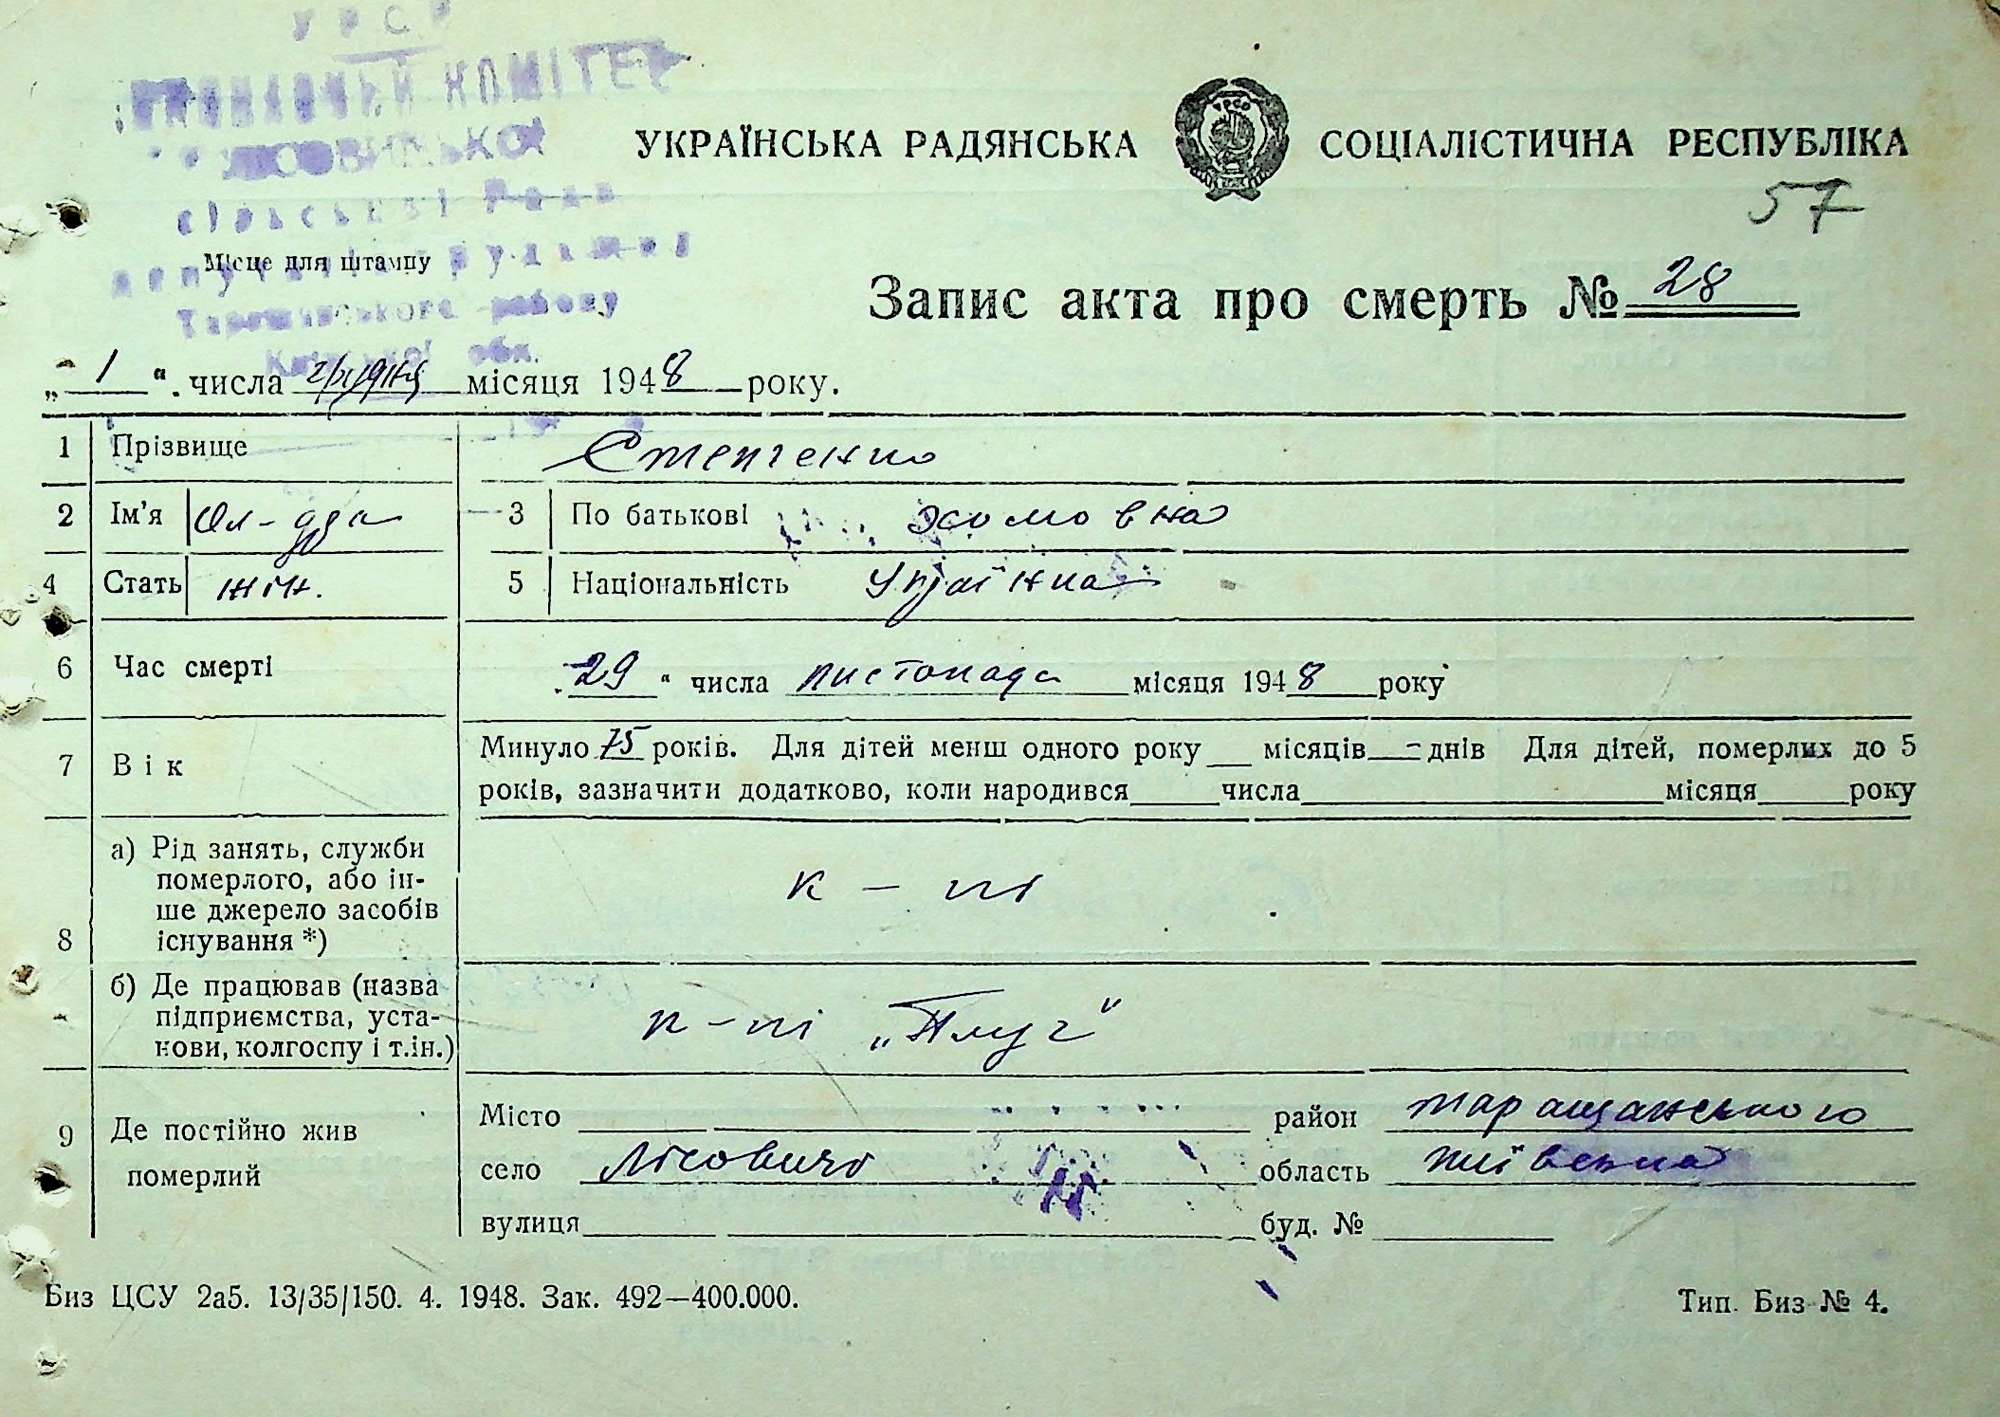 УРСР
ВИКОНАВЧИЙ КОМІТЕТ
ЛІСОВИЦЬКОЇ
сільської Ради
депутатів трудящих
Таращанського району
Київської обл.
Місце для штампу
УКРАЇНСЬКА РАДЯНСЬКА СОЦІАЛІСТИЧНА РЕСПУБЛІКА
УРСР
57
Запис акта про смерть № 28
„1“ числа грудня місяця 1948 року.
1 Прізвище Степченко
2 Ім'я 3 По батькові Хомовна
4 Стать жін. 5 Національність Українка
6 Час смерті „29“ числа листопада місяця 1948 року
7 Вік Минуло 75 років. Для дітей менш одного року місяців — днів Для дітей, померлих до 5
років, зазначити додатково, коли народився числа місяця року
8 а) Рід занять, служби
померлого, або ін-
ше джерело засобів
існування *)
к – пі
б) Де працював (назва
підприємства, уста-
нови, колгоспу і т.ін.)
к – пі „Плуг“
9 Де постійно жив
померлий
Місто район Таращанського
село Лісовичі область Київська
вулиця буд. №
Биз ЦСУ 2а5. 13/35/150. 4. 1948. Зак. 492—400.000.
Тип. Биз № 4.